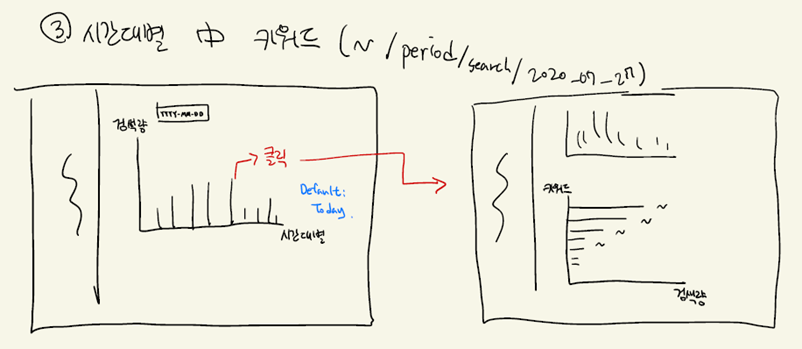 ③ 시간대별 中 키워드 (~/period/search/2020-07-27)
YYYY-MM-DD
검색량
클릭
Default:
Today.
시간대별
키워드
~
~
~
~
검색량